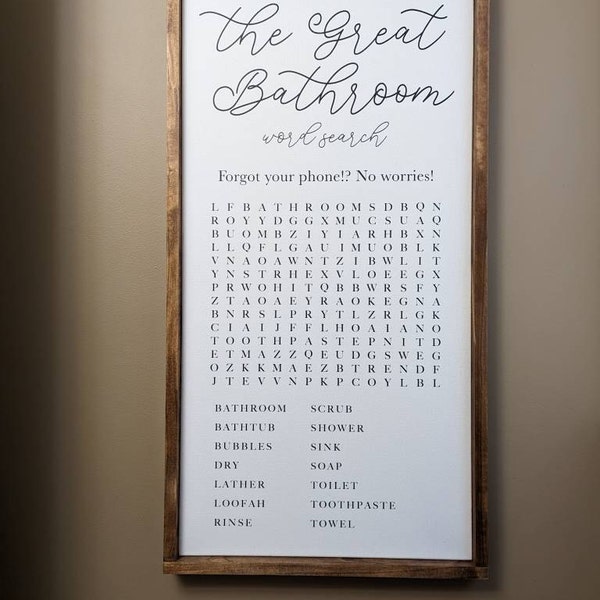 the Great
Bathroom
word search
Forgot your phone!? No worries!
L F B A T H R O O M S D B Q N
R O Y Y D G G X M U C S U A Q
B U O M B Z I Y I A R H B X N
L L Q F L G A U I M U O B L K
V N A O A W N T Z I B W L I T
Y N S T R H E X V L O E E G X
P R W O H I T Q B B W R S F Y
Z T A O A E Y R A O K E G N A
B N R S L P R Y T L Z R L G K
C I A I J F F L H O A I A N O
T O O T H P A S T E P N I T D
E T M A Z Z Q E U D G S W E G
O Z K K M A E Z B T R E N D F
J T E V V N P K P C O Y L B L
BATHROOM SCRUB
BATHTUB SHOWER
BUBBLES SINK
DRY SOAP
LATHER TOILET
LOOFAH TOOTHPASTE
RINSE TOWEL